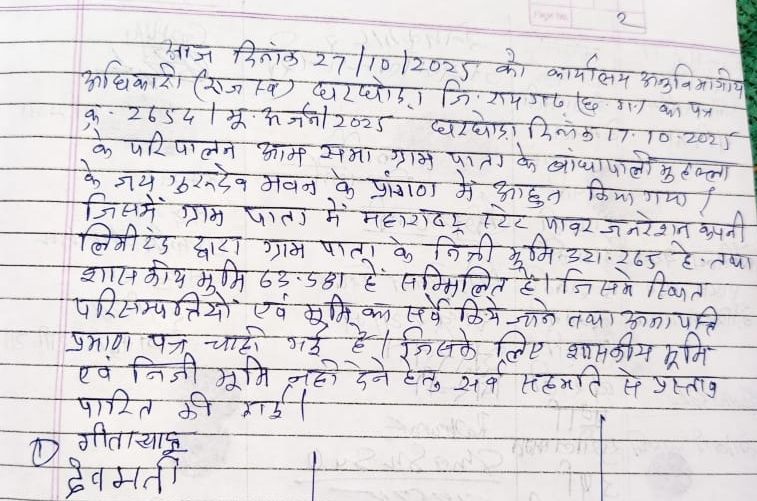 2
आज दिनांक 27/10/2025 को कार्यालय अनुविभागीय
अधिकारी (राजस्व) घरघोड़ा जि. रायगढ़ (छ.ग.) का पत्र
क्र. 2654 / भू.अर्जन/2025 घरघोड़ा दिनांक 17.10.2025
के परिपालन आम सभा ग्राम पाता के बांधापाली मुहल्ला
के जय गुरुदेव भवन के प्रांगण में आहुत किया गया।
जिसमें ग्राम पाता में महाराष्ट्र स्टेट पावर जनरेशन कंपनी
लिमीटेड द्वारा ग्राम पाता के निजी भूमि 321.265 हे. तथा
शासकीय भूमि 63.581 हे सम्मिलित है। जिसमें स्थित
परिसम्पत्तियों एवं भूमि का सर्वे किये जाने तथा अनापत्ति
प्रमाण पत्र चाही गई है। जिसके लिए शासकीय भूमि
एवं निजी भूमि नही देने हेतु सर्व सहमति से प्रस्ताव
पारित की गई।
① गीता यादव
देवमती